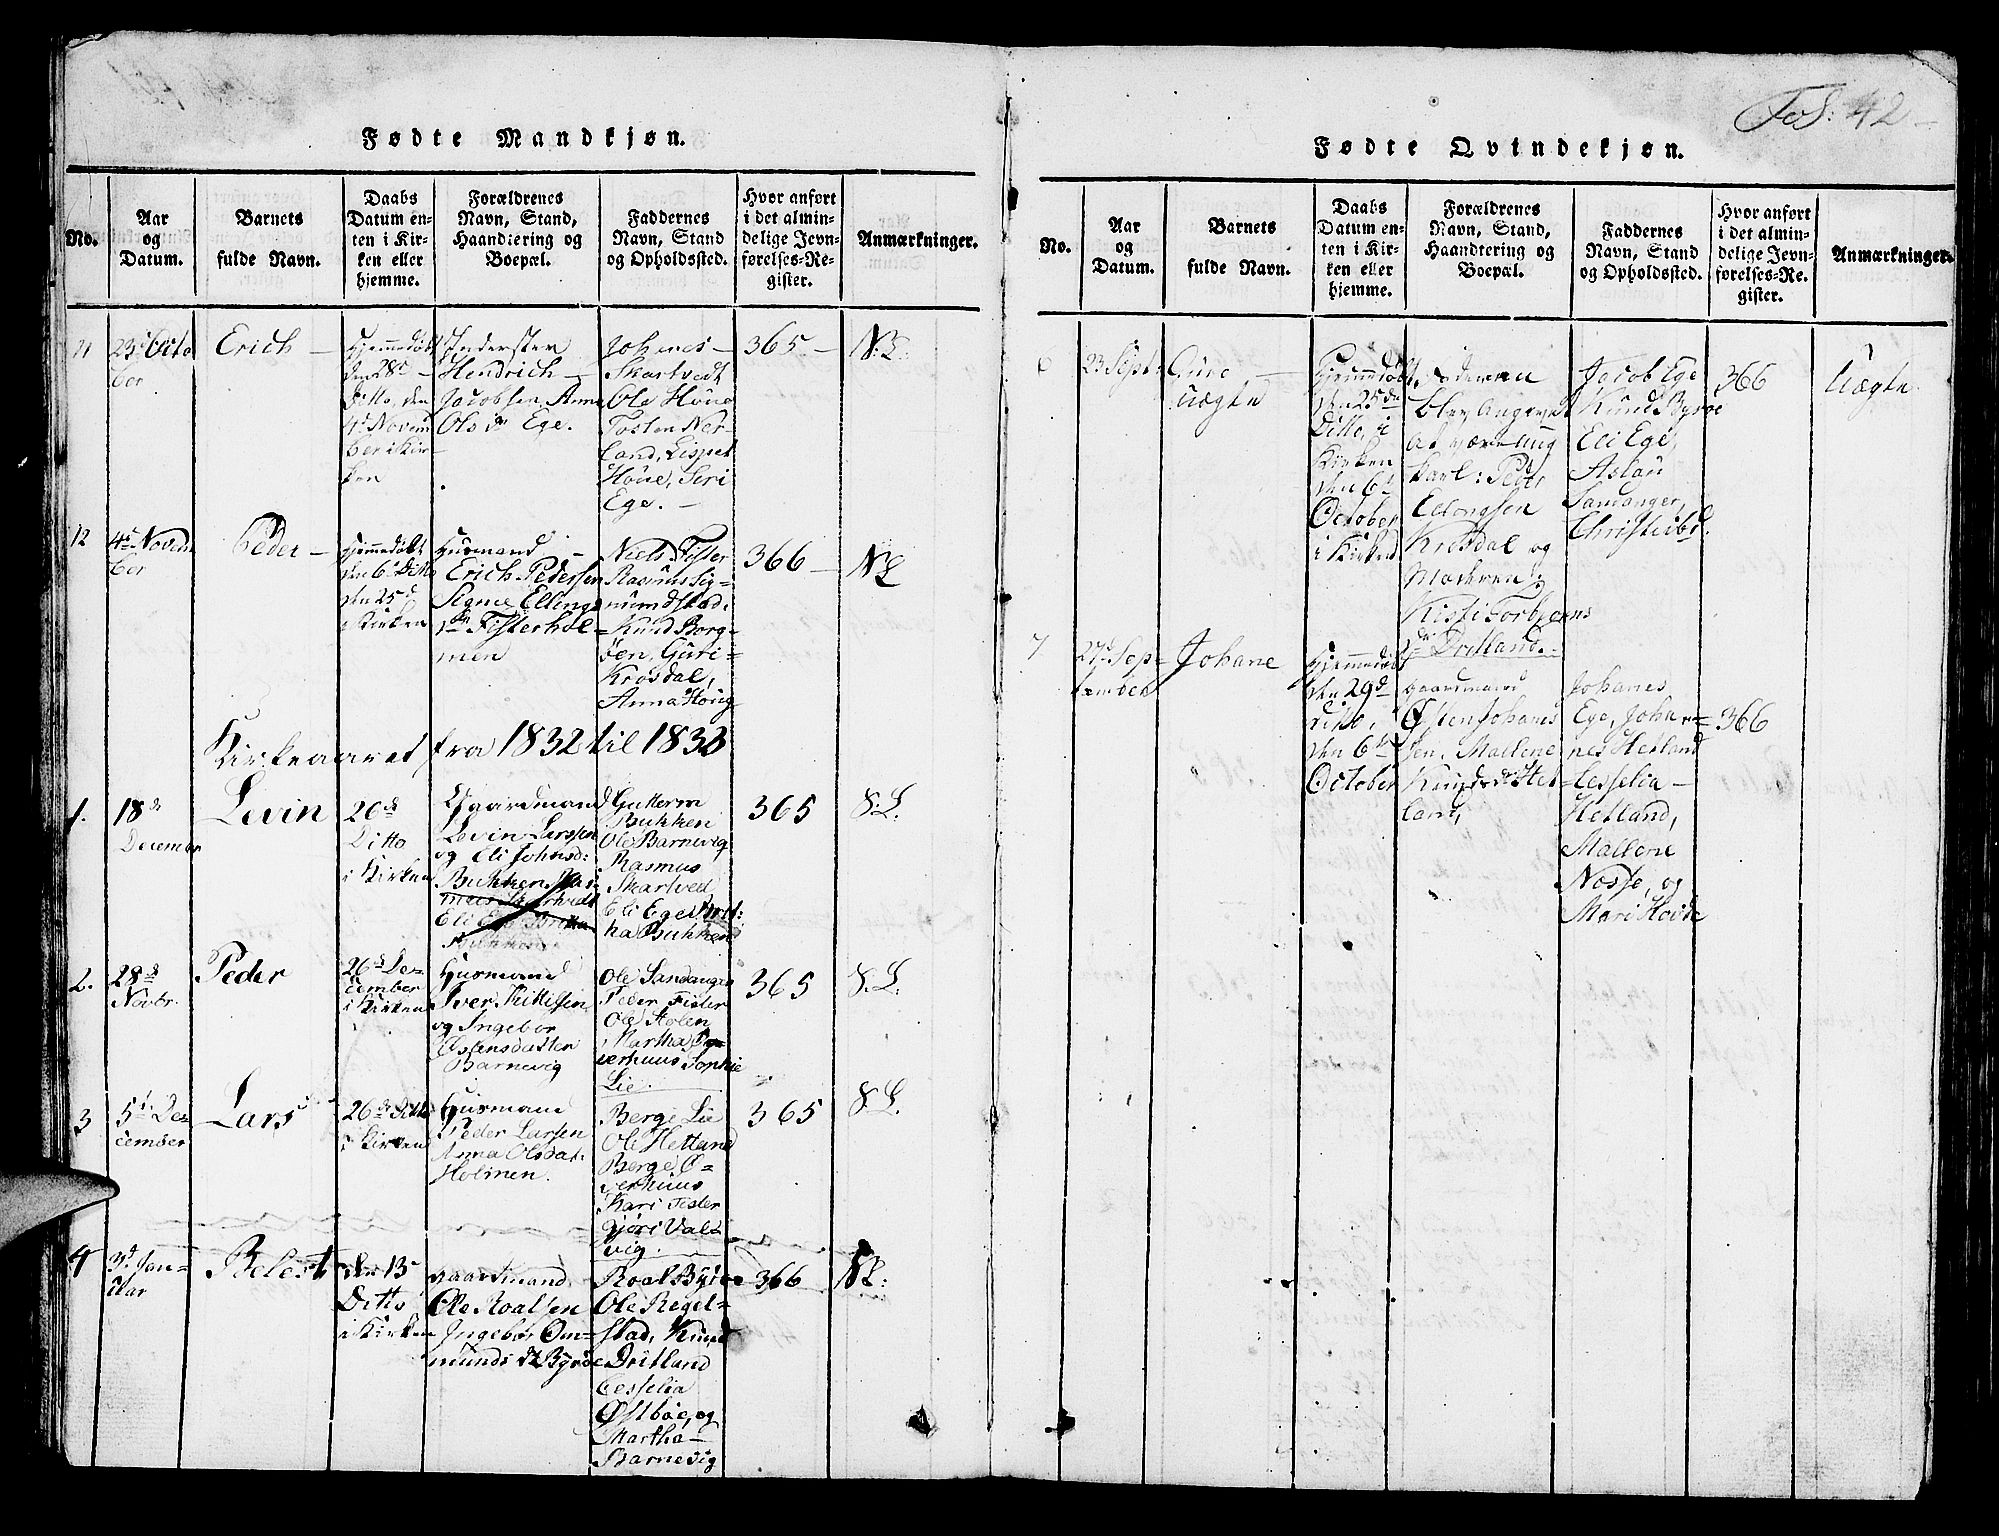 Fol: 42
Fødte Mandkjøn.
No.
Aar
og
Datum.
Barnets
fulde Navn.
Daabs
Datum en-
ten i Kir-
ken eller
hjemme.
Forældrenes
Navn, Stand,
Haandtering og
Boepæl.
Faddernes
Navn, Stand
og Opholdssted.
Hvor anført
i det almin-
delige Jevn-
førelses-Re-
gister.
Anmærkninger.
11
23d Octo
ber
Erich
Hjemmedøbt
den 28d
Ditto, den
4d Novem
ber i Kir-
ken
Inderster
Hendrich
Jacobsen Anna
Ols dr Ege.
Johanes
Skartvedt
Ole Høue
Tosten Ner-
land, Lispet
Høue, Siri
Ege.
365
N:L:
12
4d Novem
ber
Peder
Hjemmedøbt
den 6d Ditto
den 25d
i Kirken
Husmand
Erich Pedersen
Signe Ellings
dr Fisterhol-
men
Niels Fister
Rasmus Sig-
mundstad,
Knud Borg-
øen, Guri
Krosdal,
Anna Houg
366
NL
Kirkeaaret fra 1832 til 1833
1.
18d
December
Levin
26d
Ditto
i Kirken
Gaardmand
Levin Larssen
og Eli Johnsd:
Bukken
Guttorm
Bukken
Ole Barnevig
Rasmus
Skartved
Eli Ege Brit:
ha Bukken
365
S:L.
2.
28d
Novbr.
Peder
26d De-
cember
i Kirken
Husmand
Iver Kittilsen
og Ingebor
Østensdatter
Barnevig
Ole Sandanger
Peder Fister
Ole Holen
Martha O-
verhuus Sophie
Lie.
365
S:L:
3
5t De-
cember
Lars
26d Ditto
i Kirken
Husmand
Peder Larsen
Anna Olsdat:
Holmen.
Berge Lie
Ole Hetland
Berge O-
verhuus
Kari Fister
Gjøri Val-
vig.
365
S:L.
4
3d Jan-
uar
Belest
den 13
Ditto
i Kirken
gaardmand
Ole Roalsen
Ingebor Om-
munds dr Byrøe
Roal Byrøe
Ole Regel-
stad, Knud
Dritland
Cesselia
Østbøe, og
Martha
Barnevig
366
NL:
Fødte Qvindekjøn.
No.
Aar
og
Datum.
Barnets
fulde Navn.
Daabs
Datum en-
ten i Kir-
ken eller
hjemme.
Forældrenes
Navn, Stand,
Haandtering og
Boepæl.
Faddernes
Navn, Stand
og Opholdssted.
Hvor anført
i det almin-
delige Jevn-
førelses-Re-
gister.
Anmærkninger.
6
23 Sept:
Gure
uægte
Hjemmedøbt
den 25de
Ditto, i
Kirken
den 6t
October
i Kirken
Faderen
blev angivet
at være ung
karl: Peder
Ellongsen
Krosdal og
Moderen
Kisti Torbjørns
dr Dritland.
Jacob Ege
Knud Byrøe
Eli Ege,
Aslau
Sandanger,
366
Uægte
7
27d Sep-
tember
Johane
Hjemmedøbt
den 29d
Ditto,
den 6te
October
gaardmand
Østen Johanes
sen, Mallene
Knuds dr Het
land,
Johanes
Ege, Johan-
nes Hetland
Cesselia
Hetland,
Mallene
Nosse, og
Mari Hovde
366